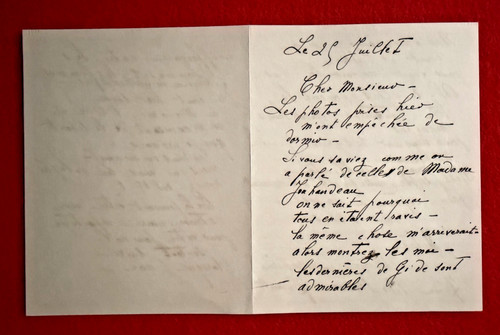 Le 25 Juillet
Cher Monsieur -
Les photos prises hier
m'ont empêchée de
dormir -
Si vous saviez comme on
a parlé de celles de Madame
Jouhandeau
on ne sait pourquoi
tous en étaient ravis -
la même chose m'arriverait -
alors montrez les moi -
les dernières de Gide sont
admirables